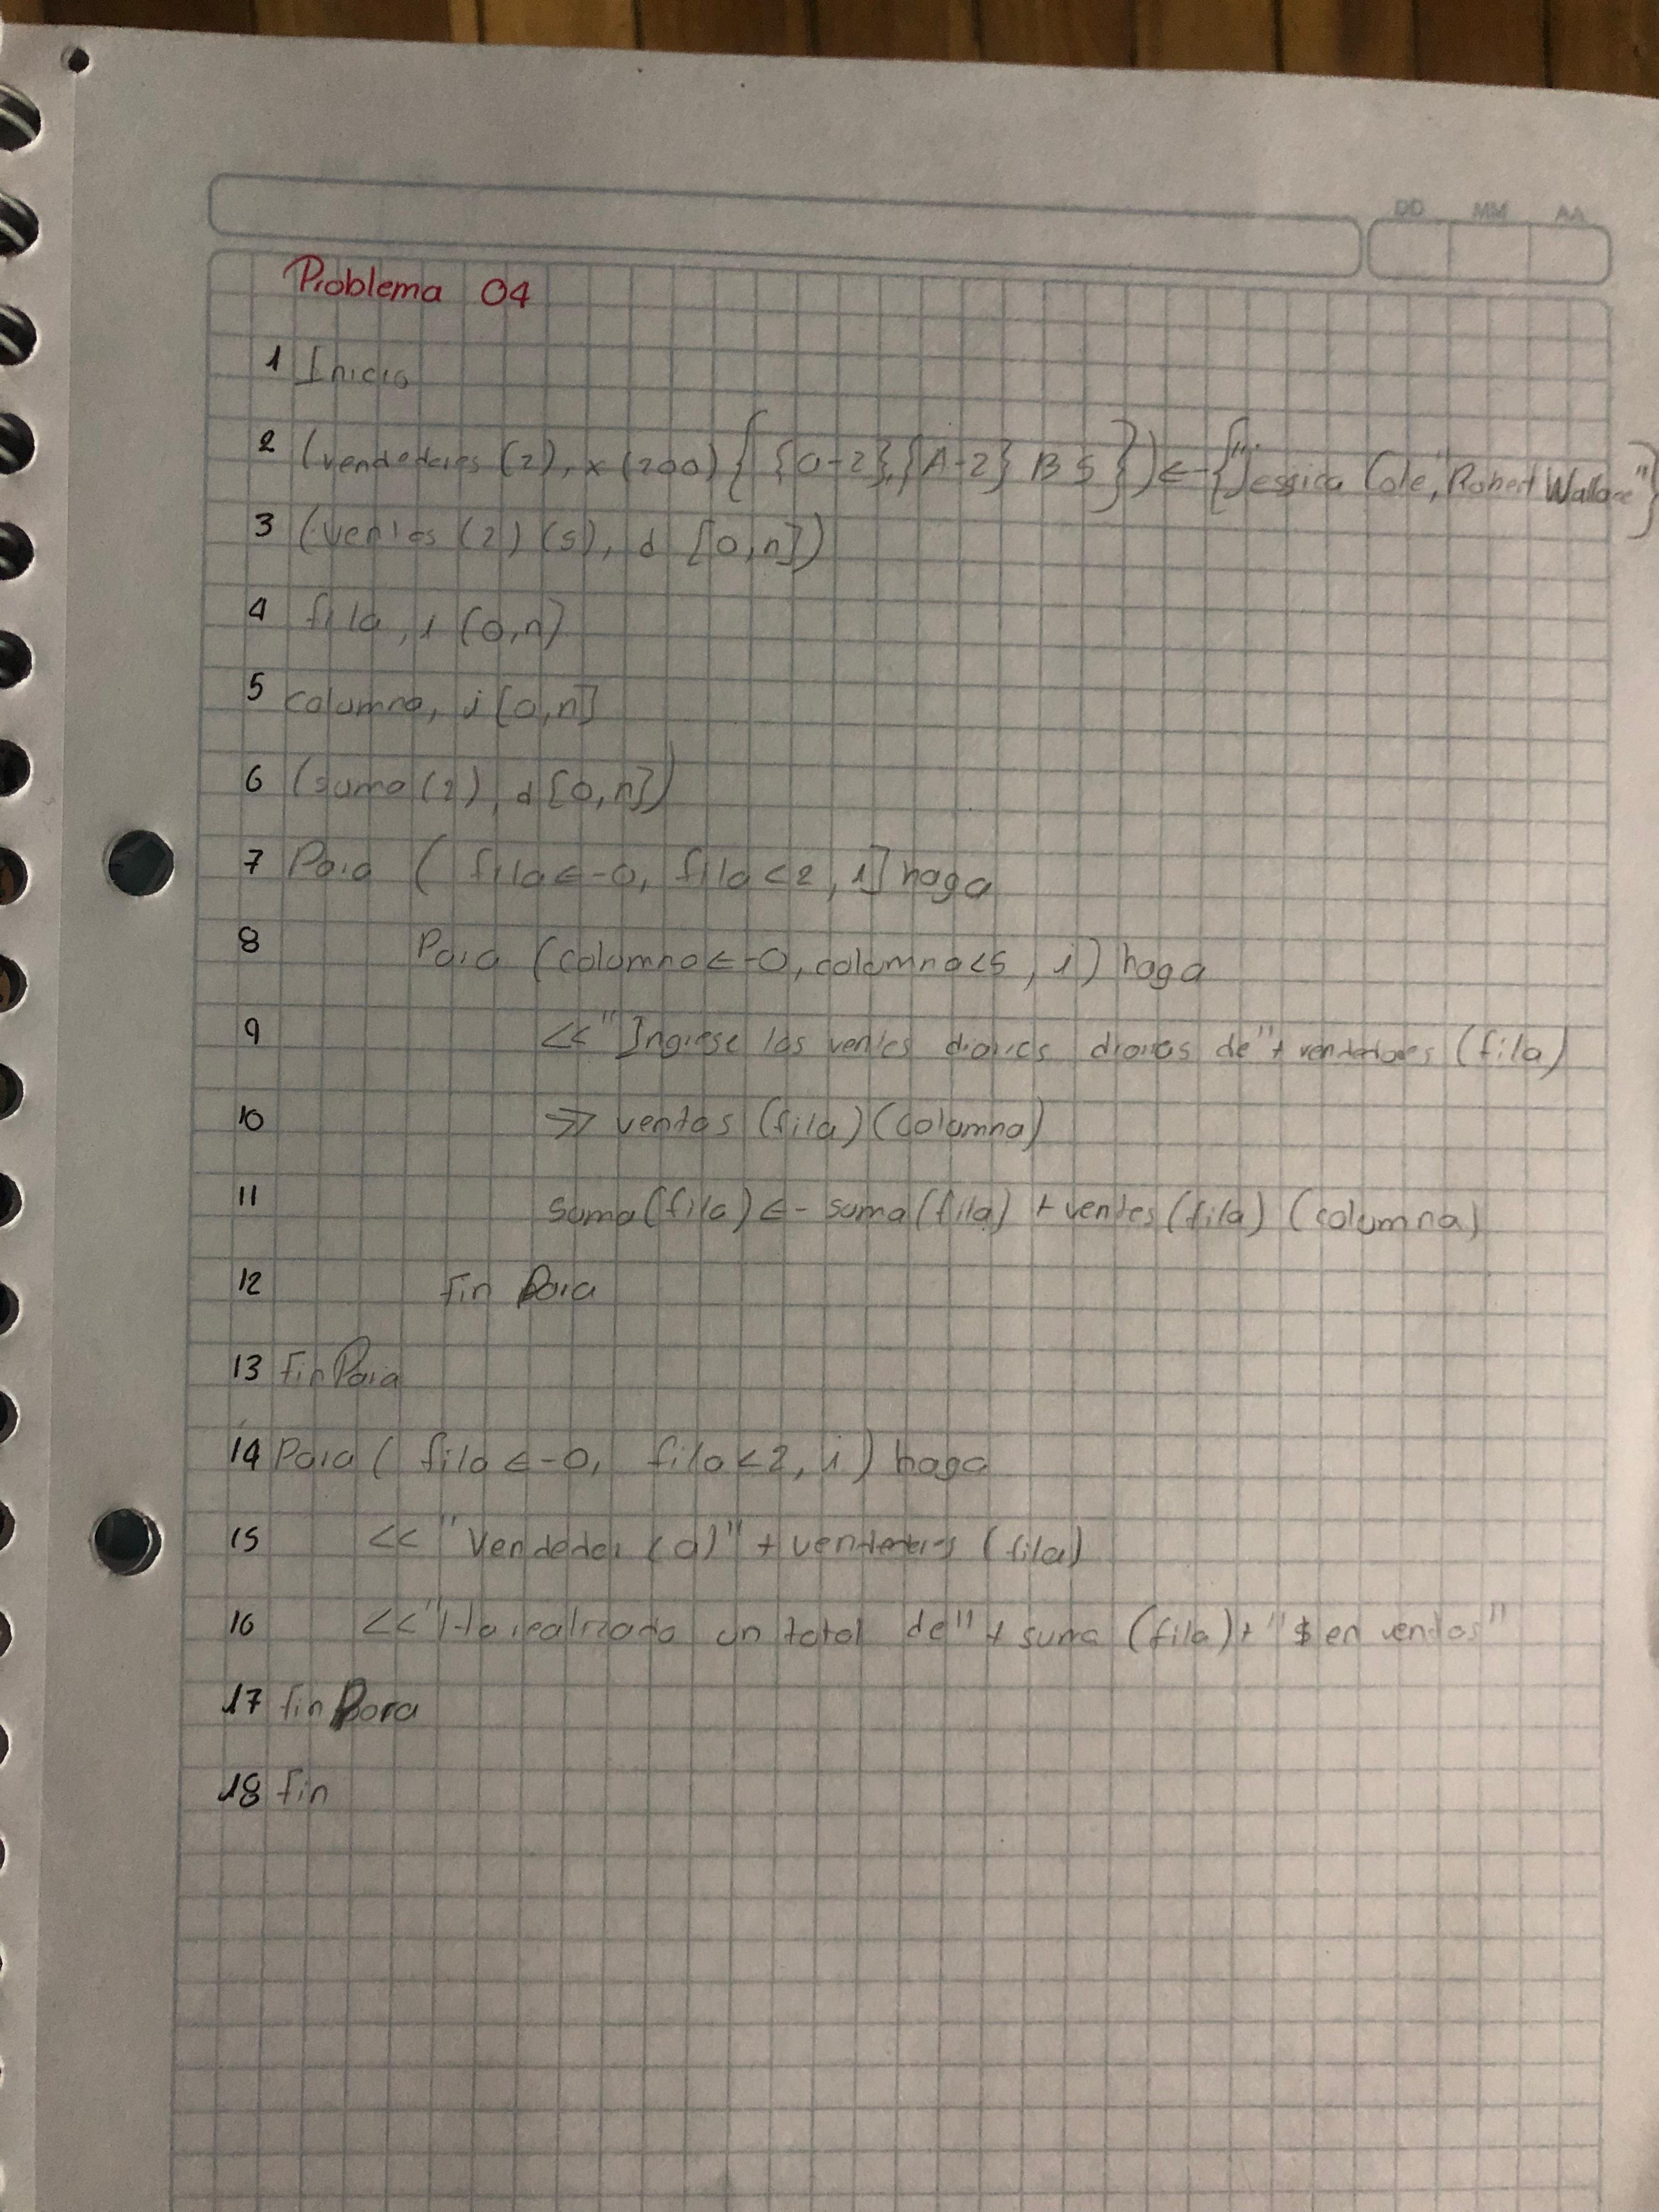 DD MM AA
Problema 04
1 Inicio
2 (vendedores (2), x (200) { {0-2}, {A-2} B S }) <- {"Jessica Cole", "Robert Wallace"}
3 (ventas (2) (5), d [0,n])
4 fila, i [0,n]
5 columna, i [0,n]
6 (suma (2), d [0,n])
7 Para ( fila <- 0, fila < 2, 1] haga
8 Para (columna <- 0, columna < 5, 1) haga
9 << "Ingrese las ventas diarias diarias de" + vendedores (fila)
10 >> ventas (fila) (columna)
11 suma (fila) <- suma (fila) + ventas (fila) (columna)
12 fin Para
13 fin Para
14 Para ( fila <- 0, fila < 2, 1) haga
15 << "Vendedor (a)" + vendedores (fila)
16 << "Ha realizado un total de" + suma (fila) + "$ en ventas"
17 fin Para
18 fin